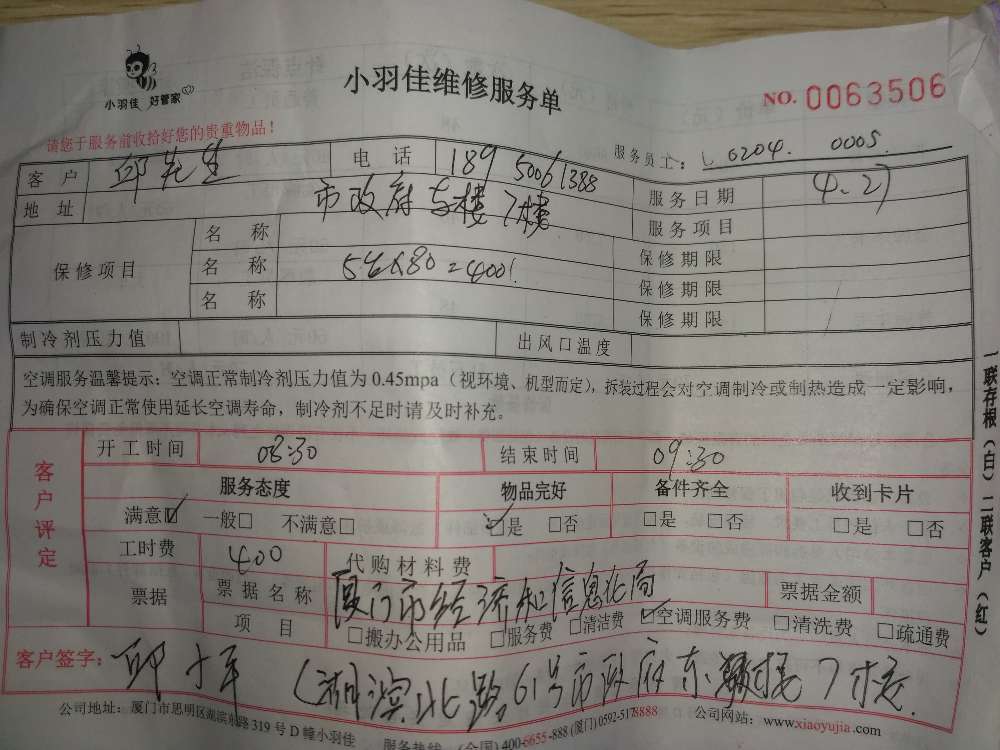 小羽佳 好管家
小羽佳维修服务单
NO. 0063506
请您于服务前收拾好您的贵重物品！
服务员工： 0204. 0005.
客户 邱先生 电话 189 50061388 服务日期 4.27
地址 市政府东楼7楼 服务项目
保修项目 名称 保修期限
名称 5台×80=400! 保修期限
名称 保修期限
制冷剂压力值 出风口温度
空调服务温馨提示：空调正常制冷剂压力值为 0.45mpa（视环境、机型而定），拆装过程会对空调制冷或制热造成一定影响，
为确保空调正常使用延长空调寿命，制冷剂不足时请及时补充。
客户评定
开工时间 08:30 结束时间 09:30
服务态度 物品完好 备件齐全 收到卡片
满意☑ 一般□ 不满意□ ☑是 □否 □是 □否 □是 □否
工时费 400 代购材料费
票据 票据名称 厦门市经济和信息化局 票据金额
项目 □搬办公用品 □服务费 □清洁费 ☑空调服务费 □清洗费 □疏通费
客户签字： 邱 (湖滨北路61号市政府东楼7楼
公司地址：厦门市思明区湖滨东路 319 号 D 幢小羽佳 服务热线 (全国) 400-6655-888 (厦门) 0592-5178888 公司网站：www.xiaoyujia.com
一联存根（白）二联客户（红）